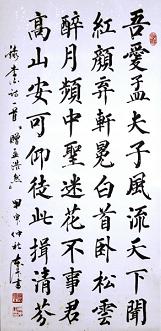 吾愛孟夫子風流天下聞
紅顏弃軒冕白首卧松雲
醉月頻中聖迷花不事君
高山安可仰徒此揖清芬
詩一首贈孟浩然甲申仲秋書